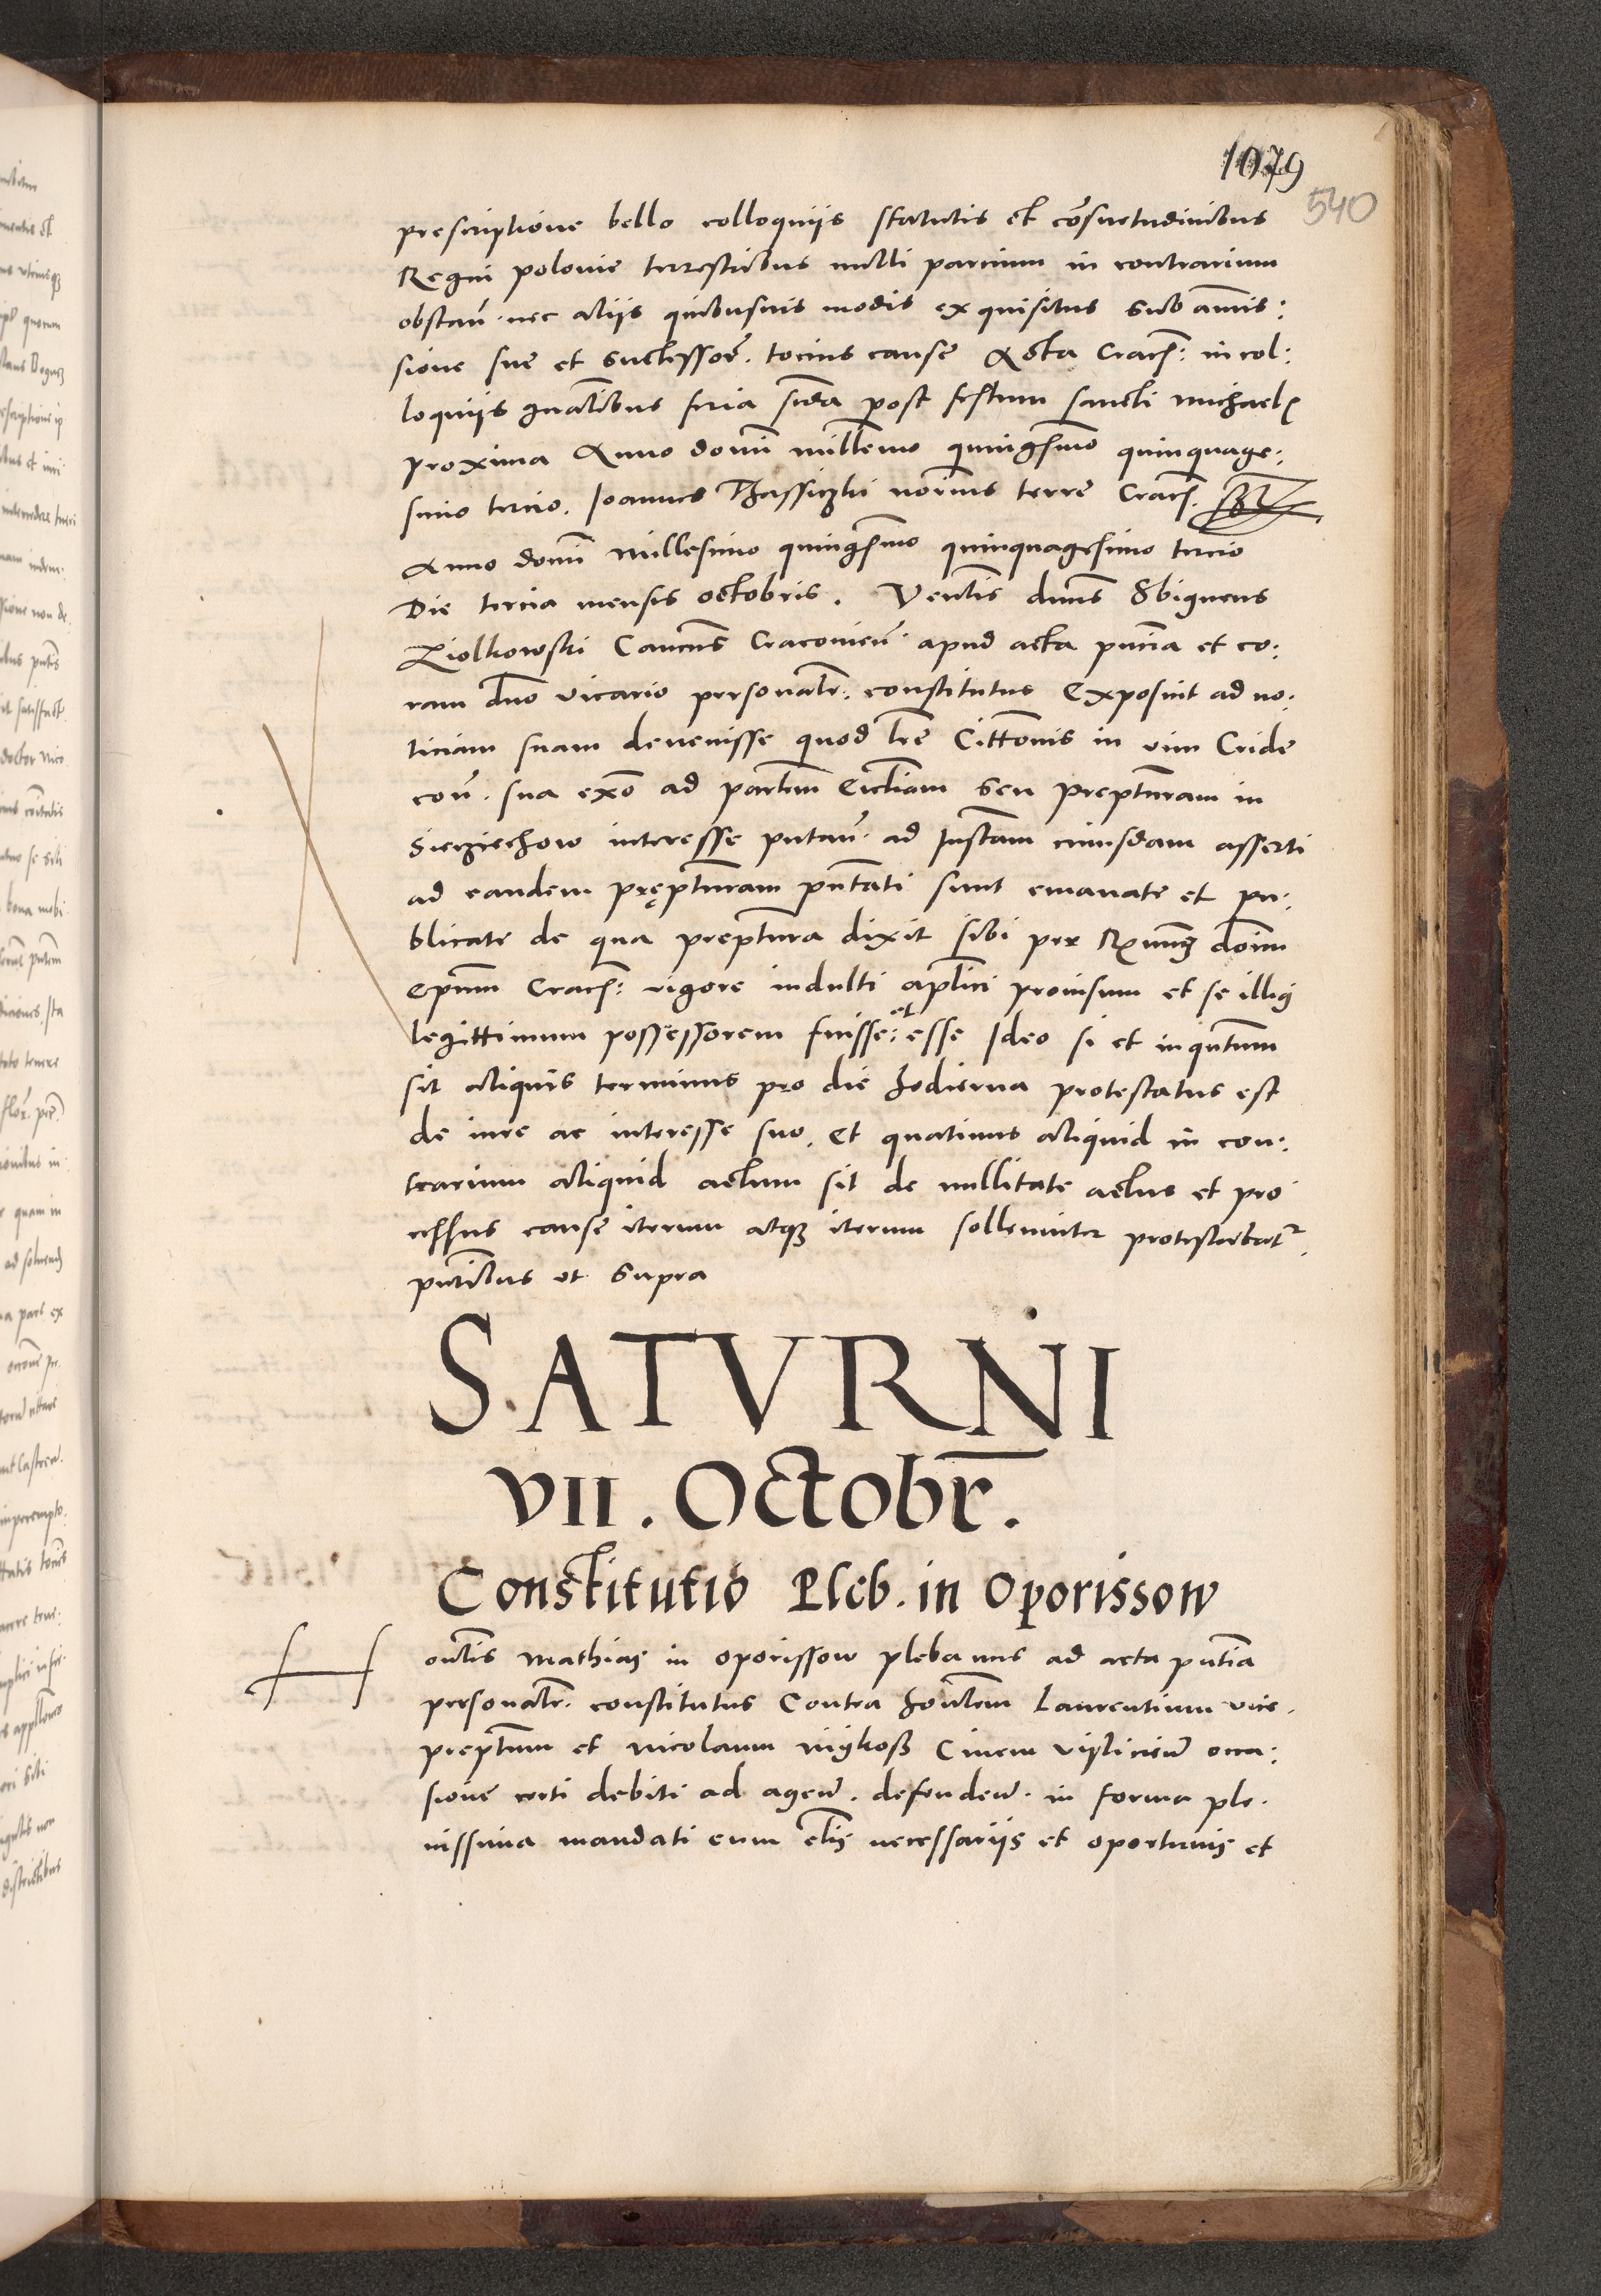 1079
540
prescriptione bello colloquiis statutis et cõsuetudinibus
Regni polonie terrestribus nulli parcium in contrarium
obstañ. nec aliis quibusuis modis exquisitus sub amis:
sione sue et successor̃. tocius cause Acta Crach: in col:
loquiis gnãlibus feria scďa post festum sancti michael
proxima Anno domĩ millemo quingẽsmo quinquage:
simo tercio. Joannes Thassiczki notrius terre Crach.
Anno domĩ Millesimo quingẽsmo quinquagesimo tercio
Die tercia mensis octobris. Venlis dnus Sbigneus
Ziolkowski Cancus Cracovieñ. apud acta pñcia et co:
ram dño vicario personalr. constitutus Exposuit ad no:
ticiam suam devenisse quod lr̃e Cittõnis in vim Cride
coñ. sua exõ ad parlem Eccliam seu Prepturam in
Sieciechow interesse putañ. ad Instam cuiusdam asserti
ad eandem pręptturam pñtati sunt emanate et pu:
blicate de qua preptura dixit sibi per Rmum dom
epum Crach: vigore indulti aplici prouisum et se illi
legittimum possessorem fuisse: et esse Ideo si et inquntum
sit aliquis terminus pro die hodierna protestatus est
de iure ac interesse suo. Et quatinus aliquid in con:
trarium aliquid actum sit de nullitate actus et pro
cessus cause iterum atqz iterum sollemniter protestabatr.
pñtibus vt supra
SATVRNI
VII. Octobr̃.
Constitutio Pleb. in Oporissow
H
onlis Mathias in oporissow plebanus ad acta pñtia
personalr. constitutus Contra honlem Laurentium vice.
preptum et Nicolaum Civem visliciens occa:
sione certi debiti ad ageñ. defendeñ. in forma ple.
nissima mandati cum clis necessariis et oportunis et